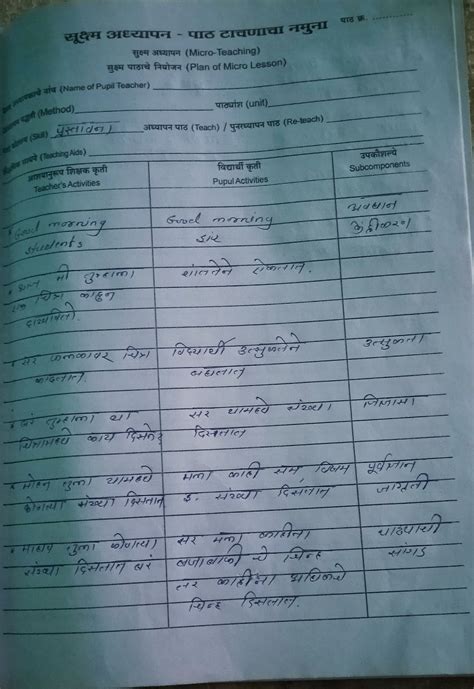 सूक्ष्म अध्यापन - पाठ टाचणाचा नमुना
पाठ क्र. ............
सुक्ष्म अध्यापन (Micro-Teaching)
सुक्ष्म पाठाचे नियोजन (Plan of Micro Lesson)
नांव (Name of Pupil Teacher)
पद्धती (Method)
पाठ्यांश (unit)
(Skill) प्रस्तावना
अध्यापन पाठ (Teach) / पुनराध्यापन पाठ (Re-teach)
साधने (Teaching Aids)
आशयानुरूप शिक्षक कृती
Teacher's Activities
विद्यार्थी कृती
Pupul Activities
उपकौशल्ये
Subcomponents
Good morning
students
Good morning
सर
अवधान
केंद्रीकरण
आज मी तुम्हाला
एक चित्र काढुन
दाखवितो.
शांततेने ऐकतात.
सर फळ्यावर चित्र
काढतात.
विद्यार्थी उत्सुकतेने
बघतात
उत्सुकता
बरं तुम्हाला या
चित्रामध्ये काय दिसते
सर यामध्ये संख्या
दिसतात
जिज्ञासा
मोहन तुला यामध्ये
कोणत्या संख्या दिसतात
मला काही सम विषम
इ. संख्या दिसतात
पूर्वज्ञान
जागृती
माधव तुला कोणत्या
संख्या दिसतात बरं
सर मला काहींना
वजाबाकी चे चिन्ह
तर काहींना अधिकचे
चिन्ह दिसतात.
सांगड